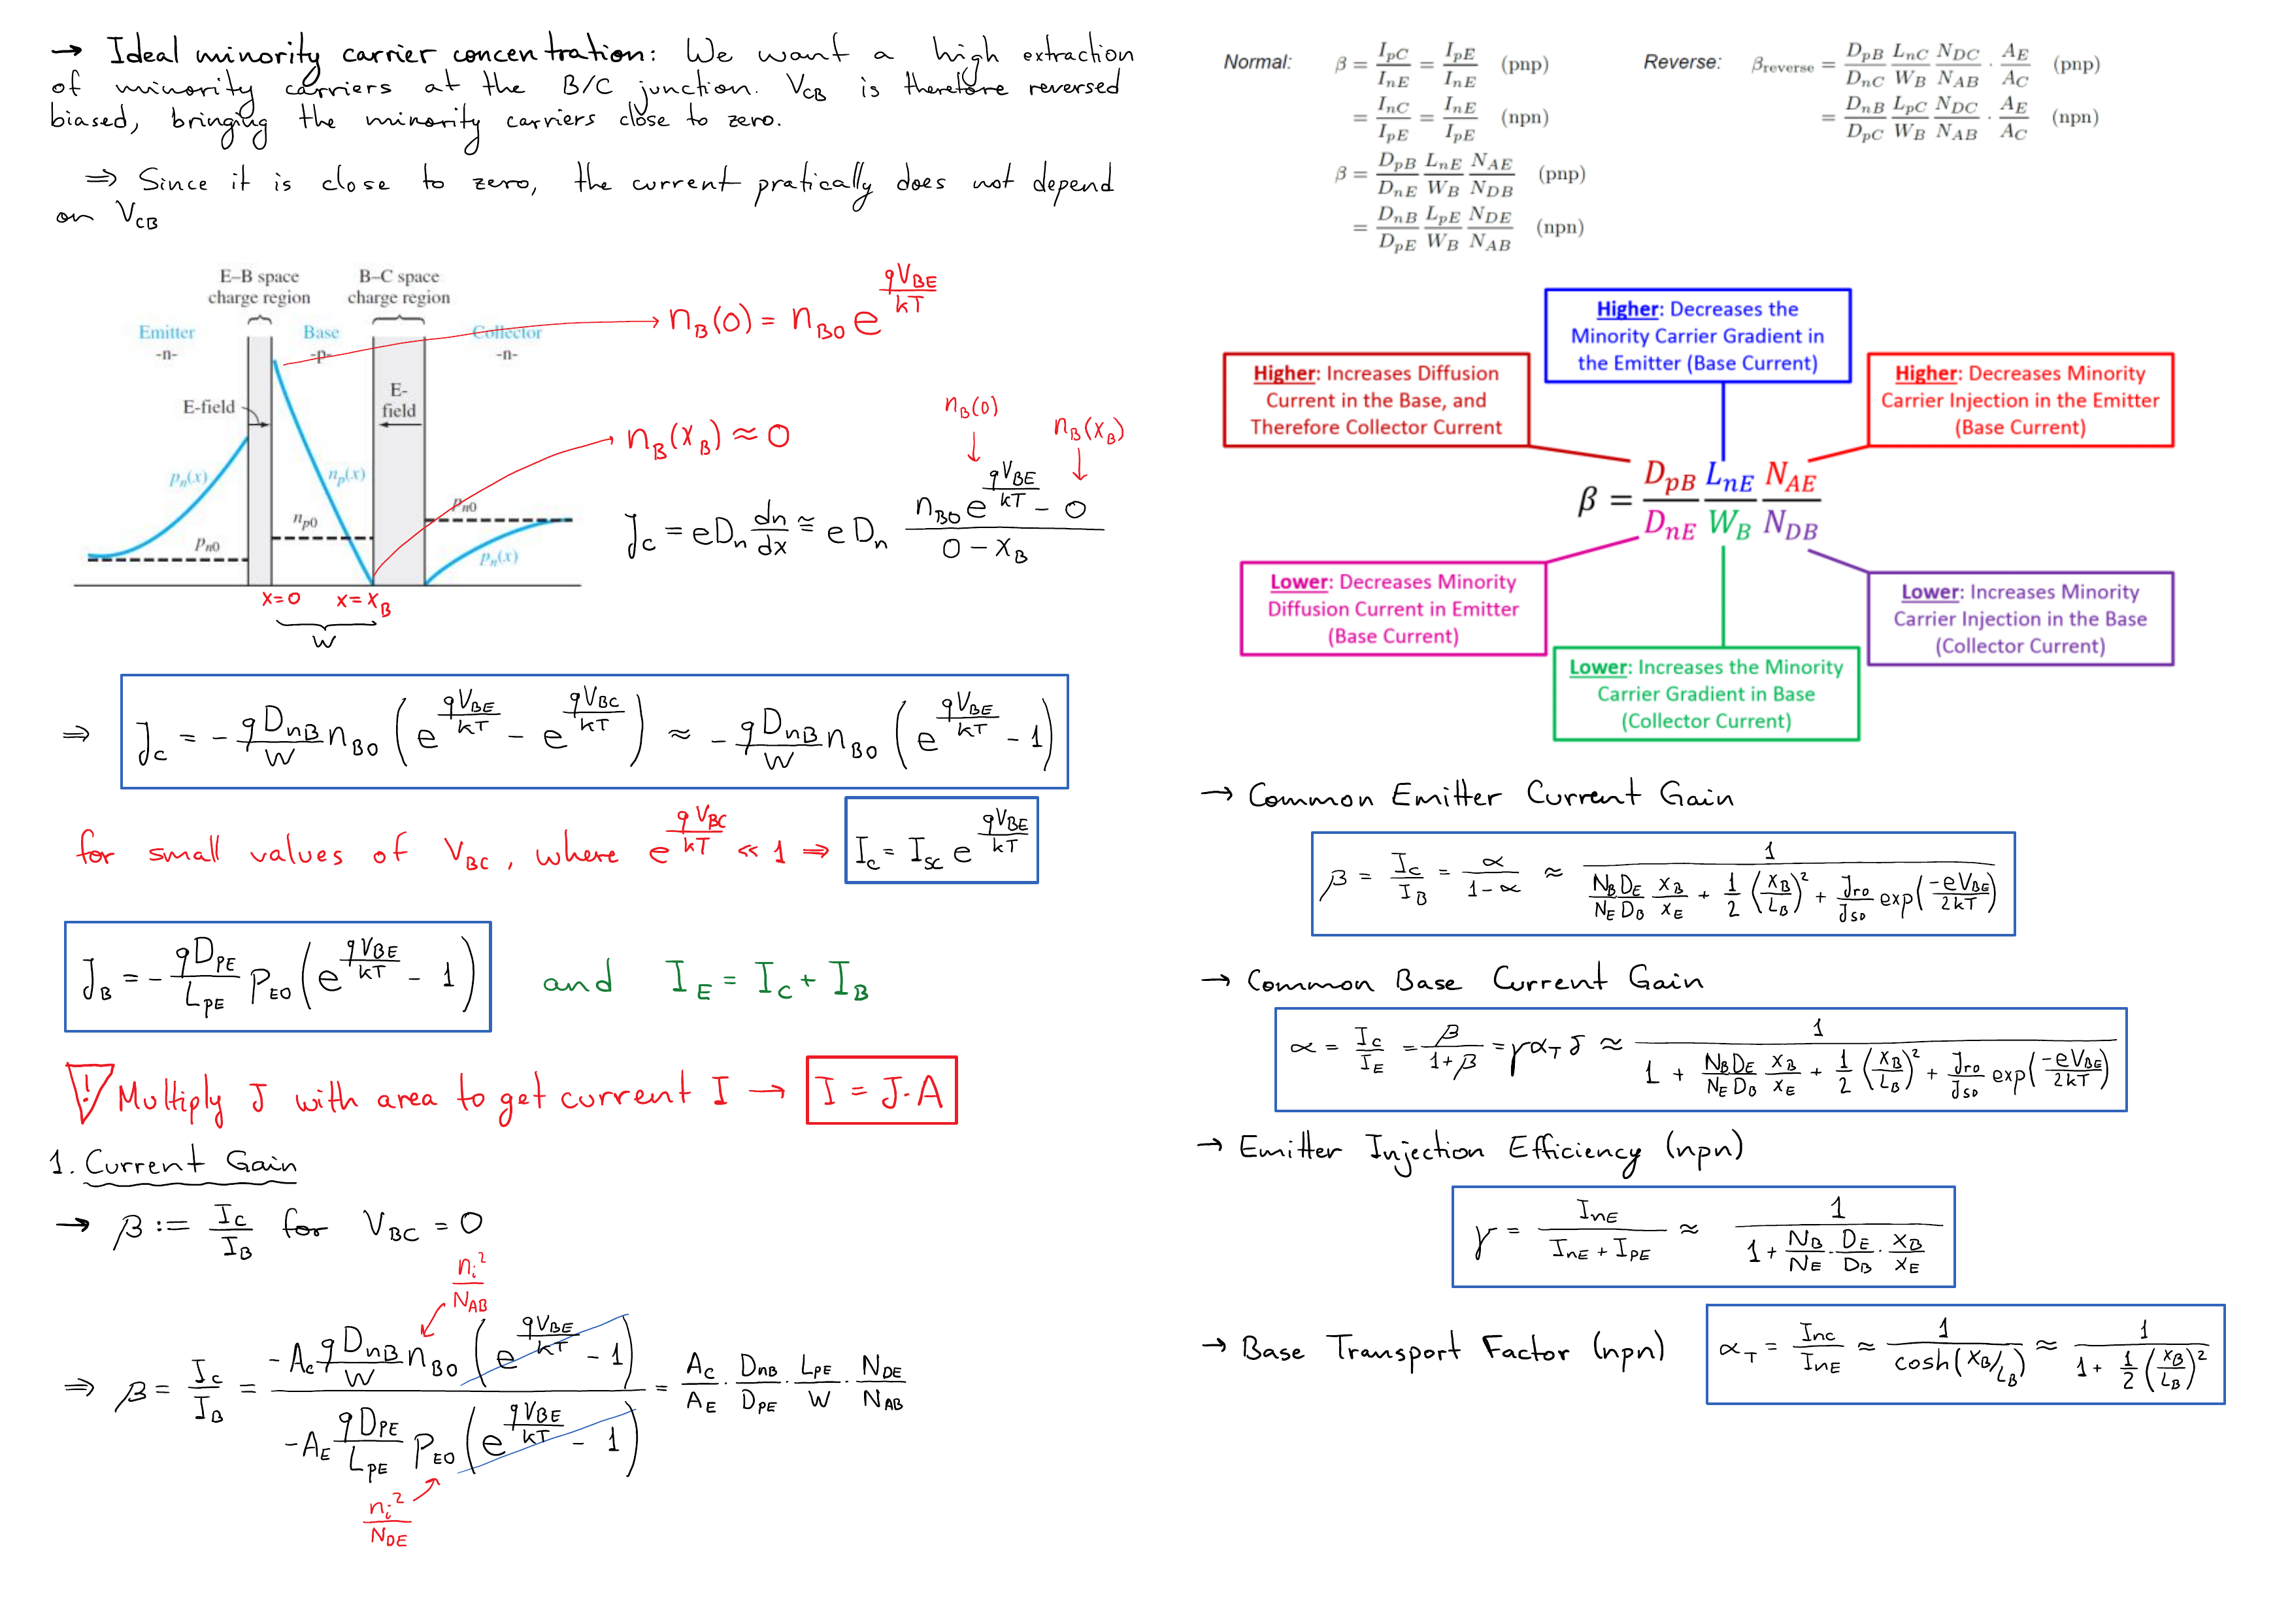 → Ideal minority carrier concentration: We want a high extraction
of minority carriers at the B/C junction. V_CB is therefore reversed
biased, bringing the minority carriers close to zero.
⇒ Since it is close to zero, the current pratically does not depend
on V_CB
E–B space charge region
B–C space charge region
Emitter -n-
Base -p-
Collector -n-
E-field
E-field
p_n(x)
n_p(x)
n_p0
p_n0
p_n0
p_n(x)
x=0 x=x_B
W
n_B(0) = n_B0 e^(qV_BE/kT)
n_B(x_B) ≈ 0
n_B(0) n_B(x_B)
J_C = eD_n dn/dx ≅ eD_n (n_B0 e^(qV_BE/kT) - 0)/(0 - x_B)
⇒ J_C = - (qD_nB/W) n_B0 (e^(qV_BE/kT) - e^(qV_BC/kT)) ≈ - (qD_nB/W) n_B0 (e^(qV_BE/kT) - 1)
for small values of V_BC, where e^(qV_BC/kT) ≪ 1 ⇒ I_C = I_SC e^(qV_BE/kT)
J_B = - (qD_PE/L_PE) P_E0 (e^(qV_BE/kT) - 1) and I_E = I_C + I_B
! Multiply J with area to get current I → I = J·A
1. Current Gain
→ β := I_C/I_B for V_BC = 0
n_i²/N_AB
⇒ β = I_C/I_B = (-A_C (qD_nB/W) n_B0 (e^(qV_BE/kT) - 1))/(-A_E (qD_PE/L_PE) P_E0 (e^(qV_BE/kT) - 1)) = A_C/A_E · D_nB/D_PE · L_PE/W · N_DE/N_AB
n_i²/N_DE
Normal: β = I_pC/I_nE = I_pE/I_nE (pnp)
= I_nC/I_pE = I_nE/I_pE (npn)
β = D_pB/D_nE L_nE/W_B N_AE/N_DB (pnp)
= D_nB/D_pE L_pE/W_B N_DE/N_AB (npn)
Reverse: β_reverse = D_pB/D_nC L_nC/W_B N_DC/N_AB · A_E/A_C (pnp)
= D_nB/D_pC L_pC/W_B N_DC/N_AB · A_E/A_C (npn)
Higher: Decreases the
Minority Carrier Gradient in
the Emitter (Base Current)
Higher: Increases Diffusion
Current in the Base, and
Therefore Collector Current
Higher: Decreases Minority
Carrier Injection in the Emitter
(Base Current)
β = D_pB/D_nE L_nE/W_B N_AE/N_DB
Lower: Decreases Minority
Diffusion Current in Emitter
(Base Current)
Lower: Increases Minority
Carrier Injection in the Base
(Collector Current)
Lower: Increases the Minority
Carrier Gradient in Base
(Collector Current)
→ Common Emitter Current Gain
β = I_C/I_B = α/(1-α) ≈ 1/(N_B D_E/(N_E D_B) x_B/x_E + 1/2 (x_B/L_B)² + J_r0/J_s0 exp(-eV_BE/2kT))
→ Common Base Current Gain
α = I_C/I_E = β/(1+β) = γα_T δ ≈ 1/(1 + N_B D_E/(N_E D_B) x_B/x_E + 1/2 (x_B/L_B)² + J_r0/J_s0 exp(-eV_BE/2kT))
→ Emitter Injection Efficiency (npn)
γ = I_nE/(I_nE + I_PE) ≈ 1/(1 + N_B/N_E · D_E/D_B · x_B/x_E)
→ Base Transport Factor (npn) α_T = I_nC/I_nE ≈ 1/cosh(x_B/L_B) ≈ 1/(1 + 1/2 (x_B/L_B)²)